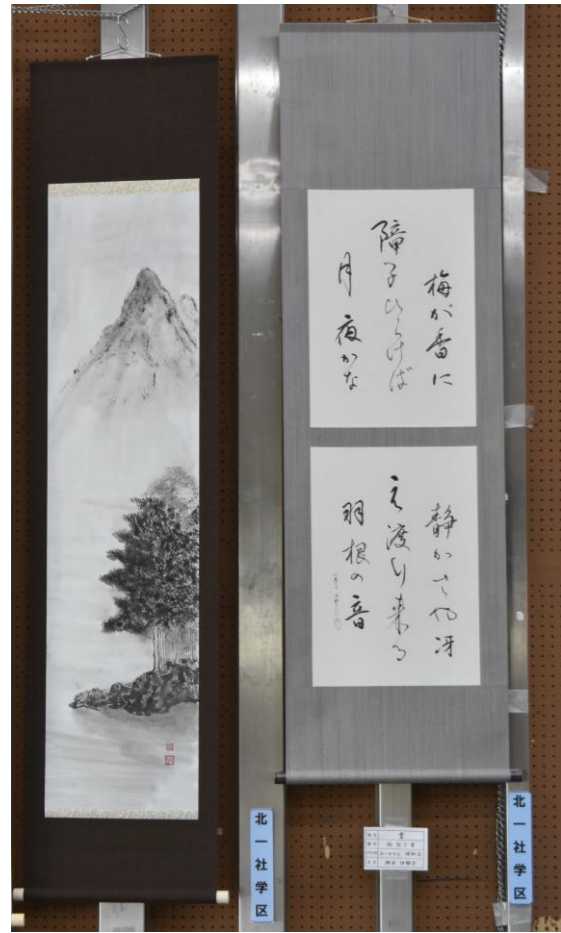 梅が香に
障子ひらけば
月夜かな
静かさや冴
え渡り来る
羽根の音
北一社学区
北一社学区
書